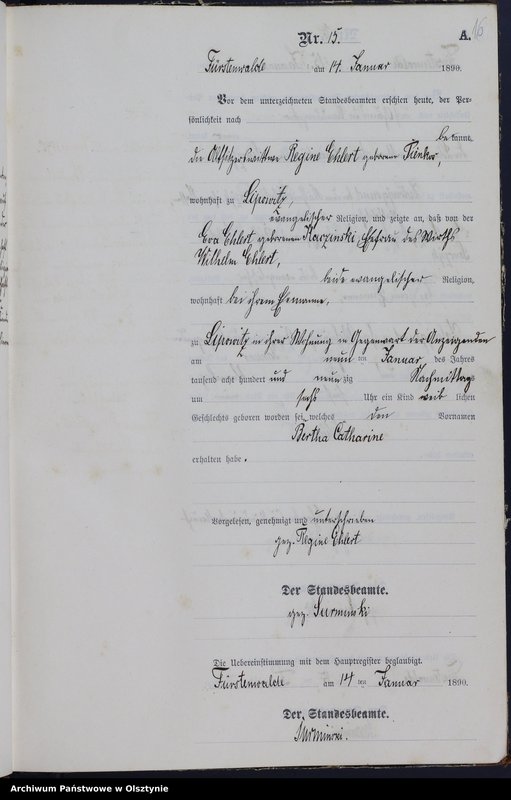 Nr. 15.
A. 16
Fürstenwalde am 14. Januar 1890.
Vor dem unterzeichneten Standesbeamten erschien heute, der Per-
sönlichkeit nach
bekannt,
die Regine Ehlert geborene
wohnhaft zu Lipowitz,
evangelischer Religion, und zeigte an, daß von der
Eva Ehlert geborenen Karzinski, Ehefrau des Wirths
Wilhelm Ehlert,
beide evangelischer Religion,
wohnhaft bei ihrem Ehemanne,
zu Lipowitz in ihrer Wohnung in Gegenwart der Anzeigenden
am neun ten Januar des Jahres
tausend acht hundert und neunzig Nachmittags
um sechs Uhr ein Kind weiblichen
Geschlechts geboren worden sei, welches den Vornamen
Bertha Catharine
erhalten habe.
Vorgelesen, genehmigt und unterschrieben
gez. Regine Ehlert
Der Standesbeamte.
gez. Surminski
Die Uebereinstimmung mit dem Hauptregister beglaubigt.
Fürstenwalde am 14 ten Januar 1890.
Der Standesbeamte.
Surminski.
Archiwum Państwowe w Olsztynie